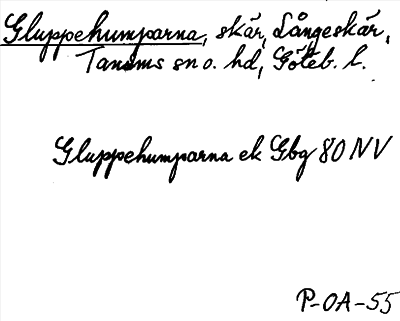 Gluppehumparna, skär, Långeskär,
Tanums sn o. hd, Göteb. l.
Gluppehumparna ek Gbg 80 NV
P-OA-55